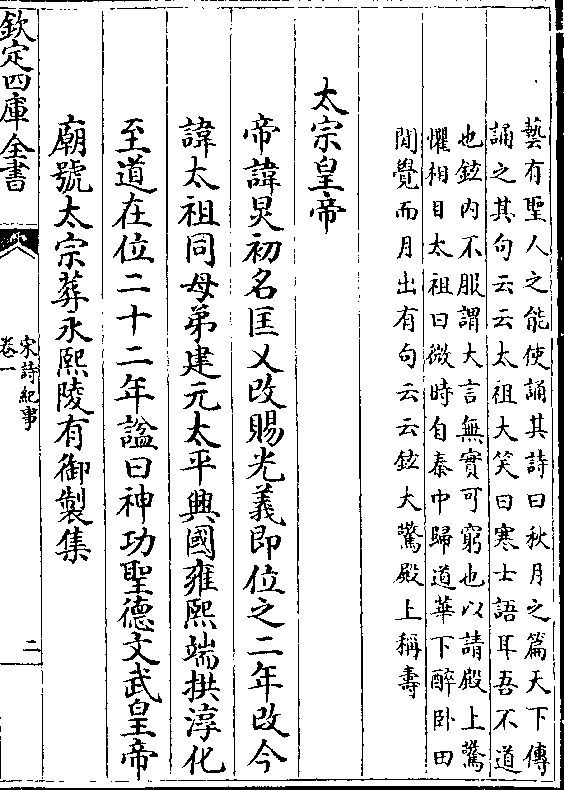 藝有聖人之能使誦其詩曰秋月之篇天下傳
誦之其句云云太祖大笑曰寒士語耳吾不道
也鉉内不服謂大言無實可窮也以請殿上驚
懼相目太祖曰微時自秦中歸道華下醉卧田
間覺而月出有句云云鉉大驚殿上稱壽
太宗皇帝
帝諱炅初名匡乂改賜光義即位之二年改今
諱太祖同母弟建元太平興國雍熙端拱淳化
至道在位二十二年諡曰神功聖德文武皇帝
廟號太宗葬永熙陵有御製集
欽定四庫全書
宋詩紀事
卷一
二